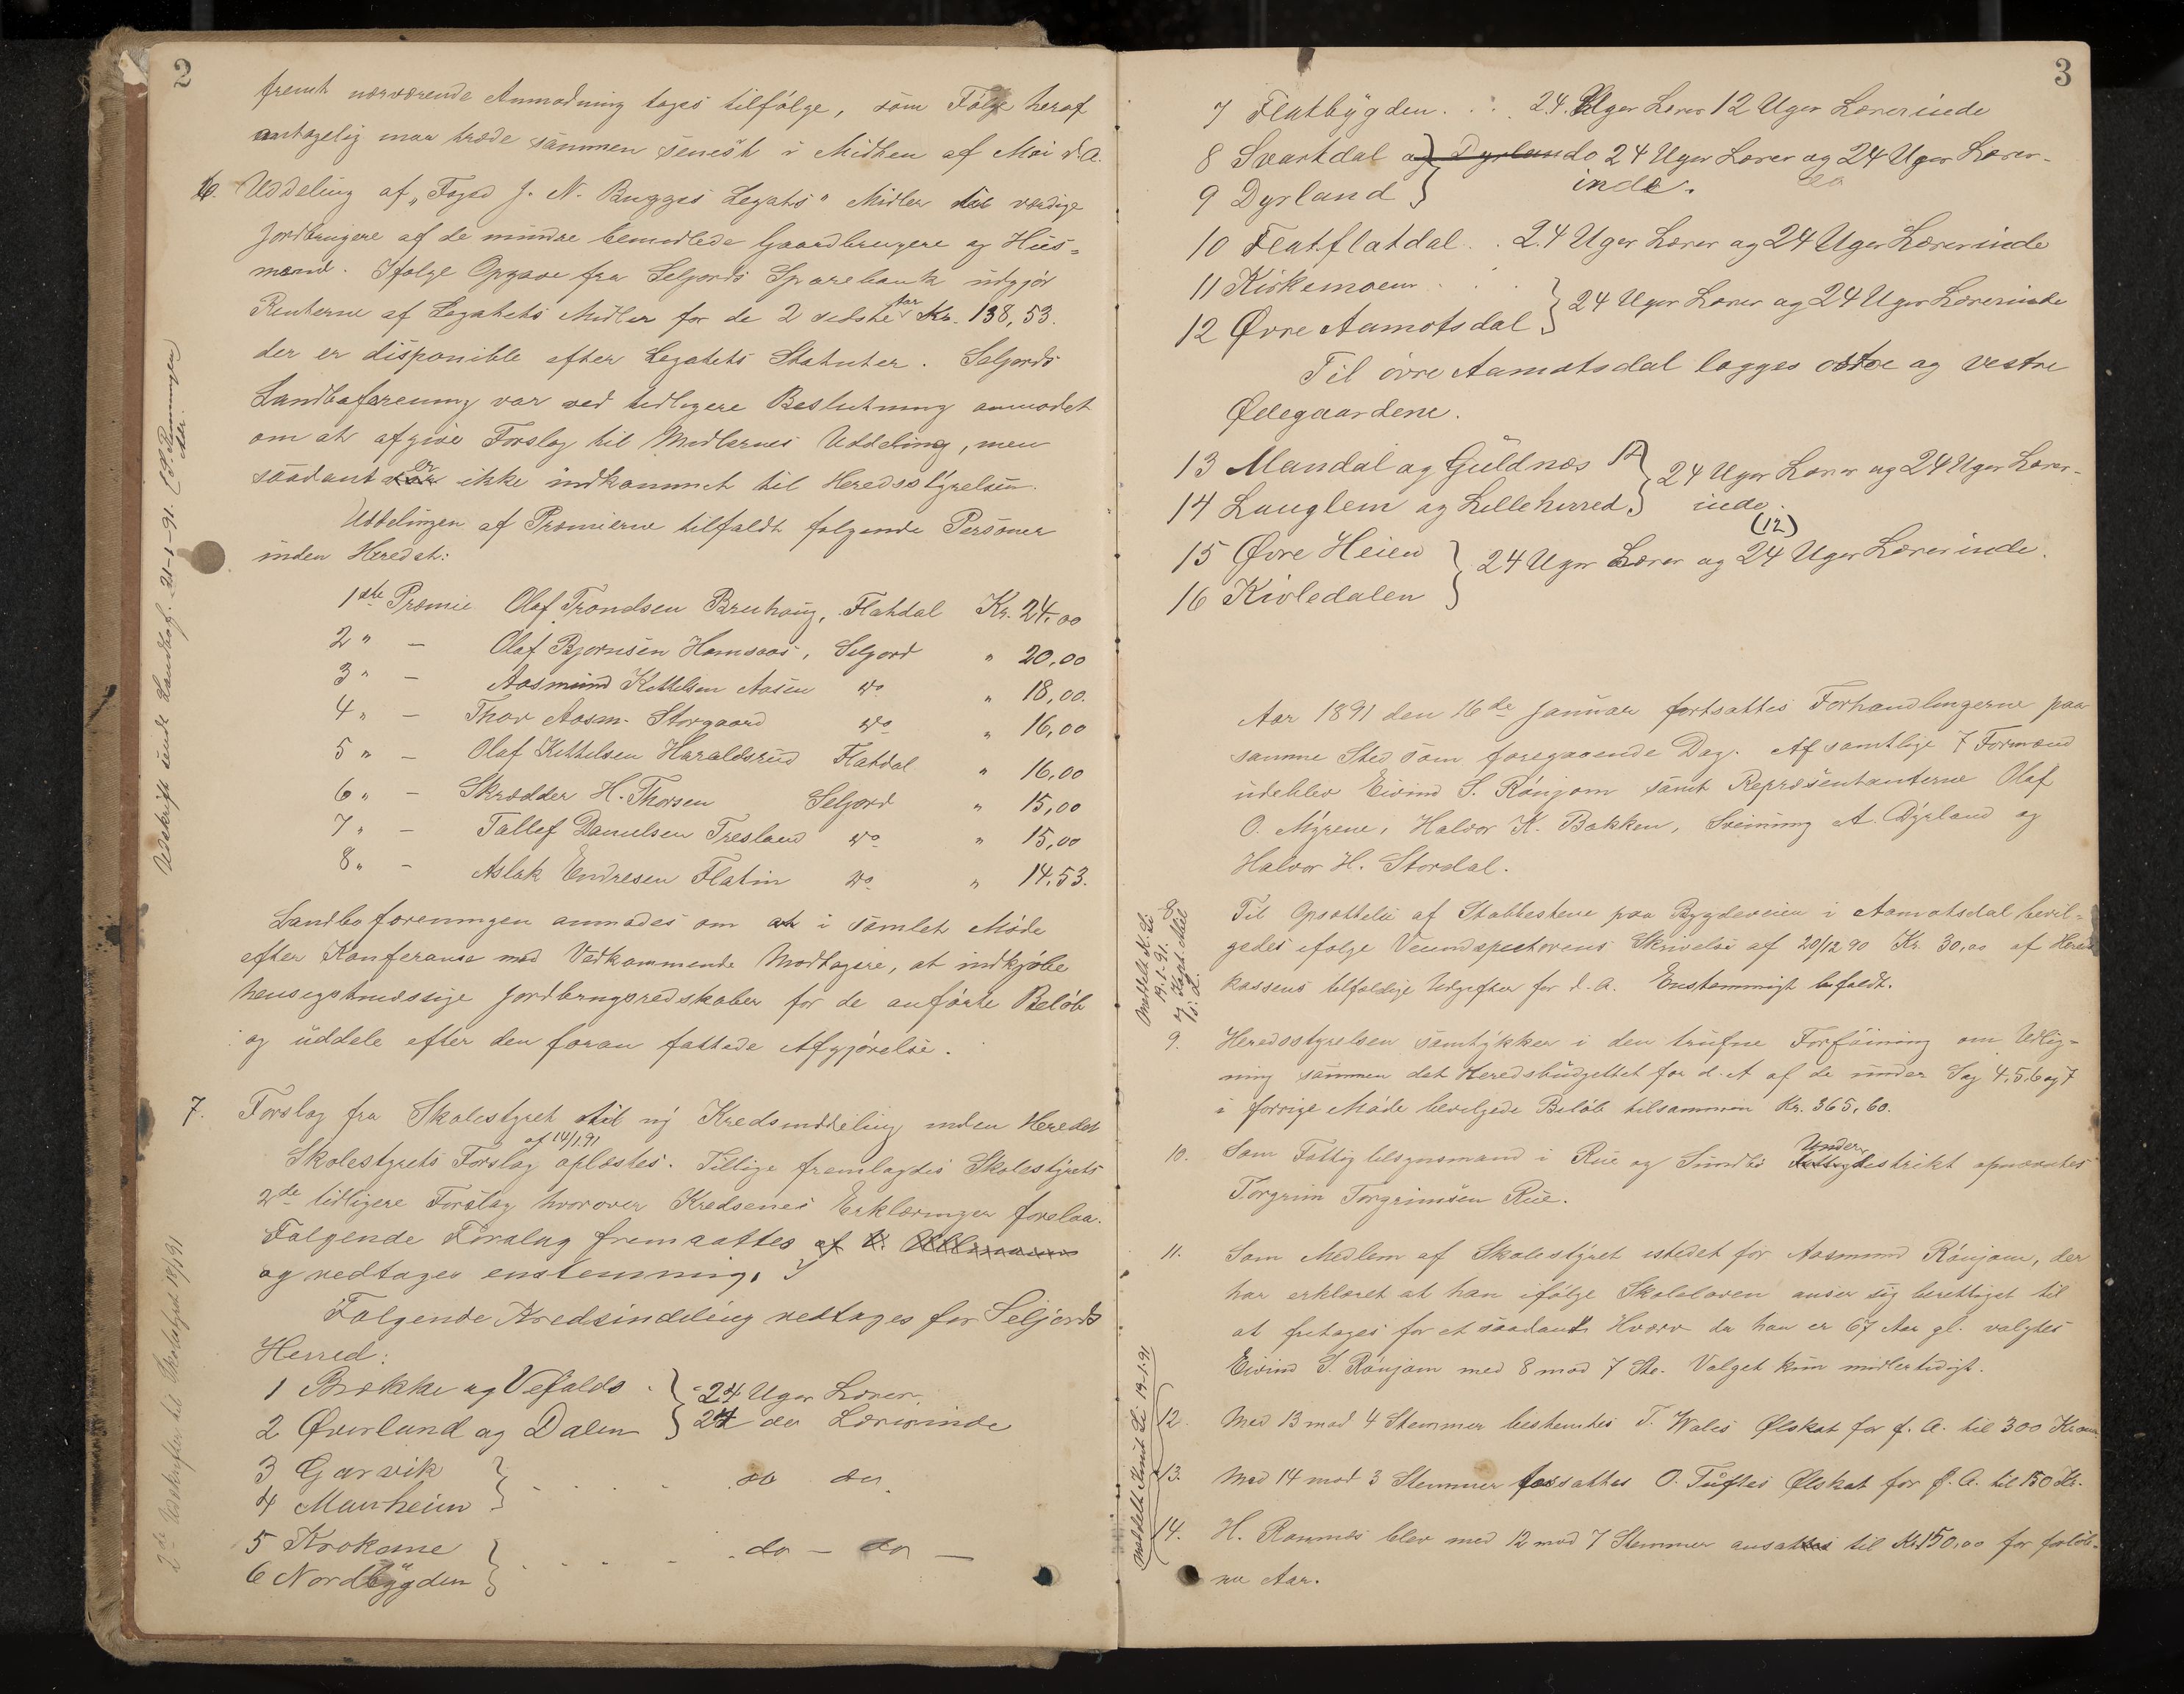 2
fremt nærværende Anmodning tages tilfølge, som Følge heraf
antagelig maa træde sammen senest i Midten af Mai d.A.
6. Uddeling af „Foged J. N. Bugges Legats" Midler til værdige
Jordbrugere af de mindre bemidlede Gaardbrugere og Hus=
mænd. Ifølge Opgave fra Seljords Sparebank udgjør
Renterne af Legatets Midler for de 2 sidste Aar Kr. 138,53.
der er disponible efter Legatets Statuter. Seljords
Landboforening var ved tidligere Beslutning anmodet
om at afgive Forslag til Midlernes Uddeling, men
saadant er ikke indkommet til Heredsstyrelsen.
Uddelingen af Præmierne tilfaldt følgende Personer
inden Heredet:
1ste Præmie Olaf Trondsen Bruhaug, Flatdal Kr. 24,00
2 " — Olaf Bjørnsen Homsaas, Seljord " 20,00
3 " — Aasmund Kittelsen Aasen do " 18,00.
4 " — Thor Aasm. Storgaard do " 16,00
5 " — Olaf Kittelsen Haraldsrud Flatdal " 16,00
6 " — Skrædder H. Thorsen Seljord " 15,00
7 " — Tallef Danielsen Tresland do " 15,00
8 " — Aslak Endresen Flatin do " 14,53.
Landboforeningen anmodes om at i samlet Møde
efter Konferanse med Vedkommende Modtagere, at indkjøbe
hensigtmæssige Jordbrugsredskaber for de anførte Beløb
og uddele efter den foran fattede Afgjørelse.
7. Forslag fra Skolestyret til ny Kredsinddeling inden Heredet
af 14/1 91
Skolestyrets Forslag oplæstes. Tillige fremlagdes Skolestyrets
2de tidligere Forslag hvorover Kredsenes Erklæringer forelaa.
Følgende Forslag fremsattes af
og vedtages enstemmig.
Følgende Kredsinddeling vedtages for Seljords
Herred:
1 Brække og Vefalds } 24 Uger Lærer.
2 Øverland og Dalen } 24 do Lærerinde
3 Garvik } . . . . do do
4 Manheim
5 Krokane } . . . . do — do —
6 Nordbygden
Udskrift sendt Landbof. 21-1-91.
2de Udskrifter til Skolestyret 18/1 91
3
7 Flatbygden . . . 24 Uger Lærer 12 Uger Lærerinde
8 Svartdal og Dyrland do 24 Uger Lærer og 24 Uger Lærer-
9 Dyrland } inde. do
10 Flatflatdal . . 24 Uger Lærer og 24 Uger Lærerinde
11 Kirkemoen . . . } 24 Uger Lærer og 24 Uger Lærerinde
12 Øvre Aamotsdal
Til øvre Aamotsdal lægges østre og vestre
Ødegaardene.
13 Mandal og Guldnæs } 24 Uger Lærer og 24 Uger Lærer-
14 Lauglem og Lilleherred } inde.
(12)
15 Øvre Heien } 24 Uger Lærer og 24 Uger Lærerinde.
16 Kivledalen
Aar 1891 den 16de Januar fortsattes Forhandlingerne paa
samme Sted som foregaaende Dag. Af samtlige 7 Formænd
udeblev Eivind S. Rønjom samt Repræsentanterne Olaf
O. Myrene, Halvor K. Bakken, Sveinung A. Dyrland og
Halvor H. Stordal.
8 Til Opsættelse af Stabbestene paa Bygdeveien i Aamotsdal bevil=
gedes ifølge Veiinspectørens Skrivelse af 20/12 90 Kr. 30,00 af Hereds
kassens tilfældige Udgifter for d. A. Enstemmigt bifaldt.
9. Heredsstyrelsen samtykker i den trufne Forføining om Udlig-
ning sammen det Heredsbudgettet for d. A af de under Sag 4, 5, 6 og 7
i forrige Møde bevilgede Beløb tilsammen Kr. 365,60.
10. Som Fattigtilsynsmand i Rue og Sundbø Underdistrikt opnævntes
Torgrim Torgrimsen Rue.
11. Som Medlem af Skolestyret istedet for Aasmund Rønjom, der
har erklæret at han ifølge Skoleloven anser sig berettiget til
at fritages for et saadant Hverv da han er 67 Aar gl. valgtes
Eivind S. Rønjom med 8 mod 7 St. Valget kun midlertidigt.
12. Med 13 mod 4 Stemmer bestemtes T. Wales Ølskat for f. A. til 300 Kroner
13. Med 14 mod 3 Stemmer fassattes O. Tuftes Ølskat for f. A. til 150 Kr.
14. H. Ramnæs blev med 12 mod 7 Stemmer ansat til Kr. 150,00 for forløb-
ne Aar.
19-1-91.
Meddelt Knut Li 19-1-91